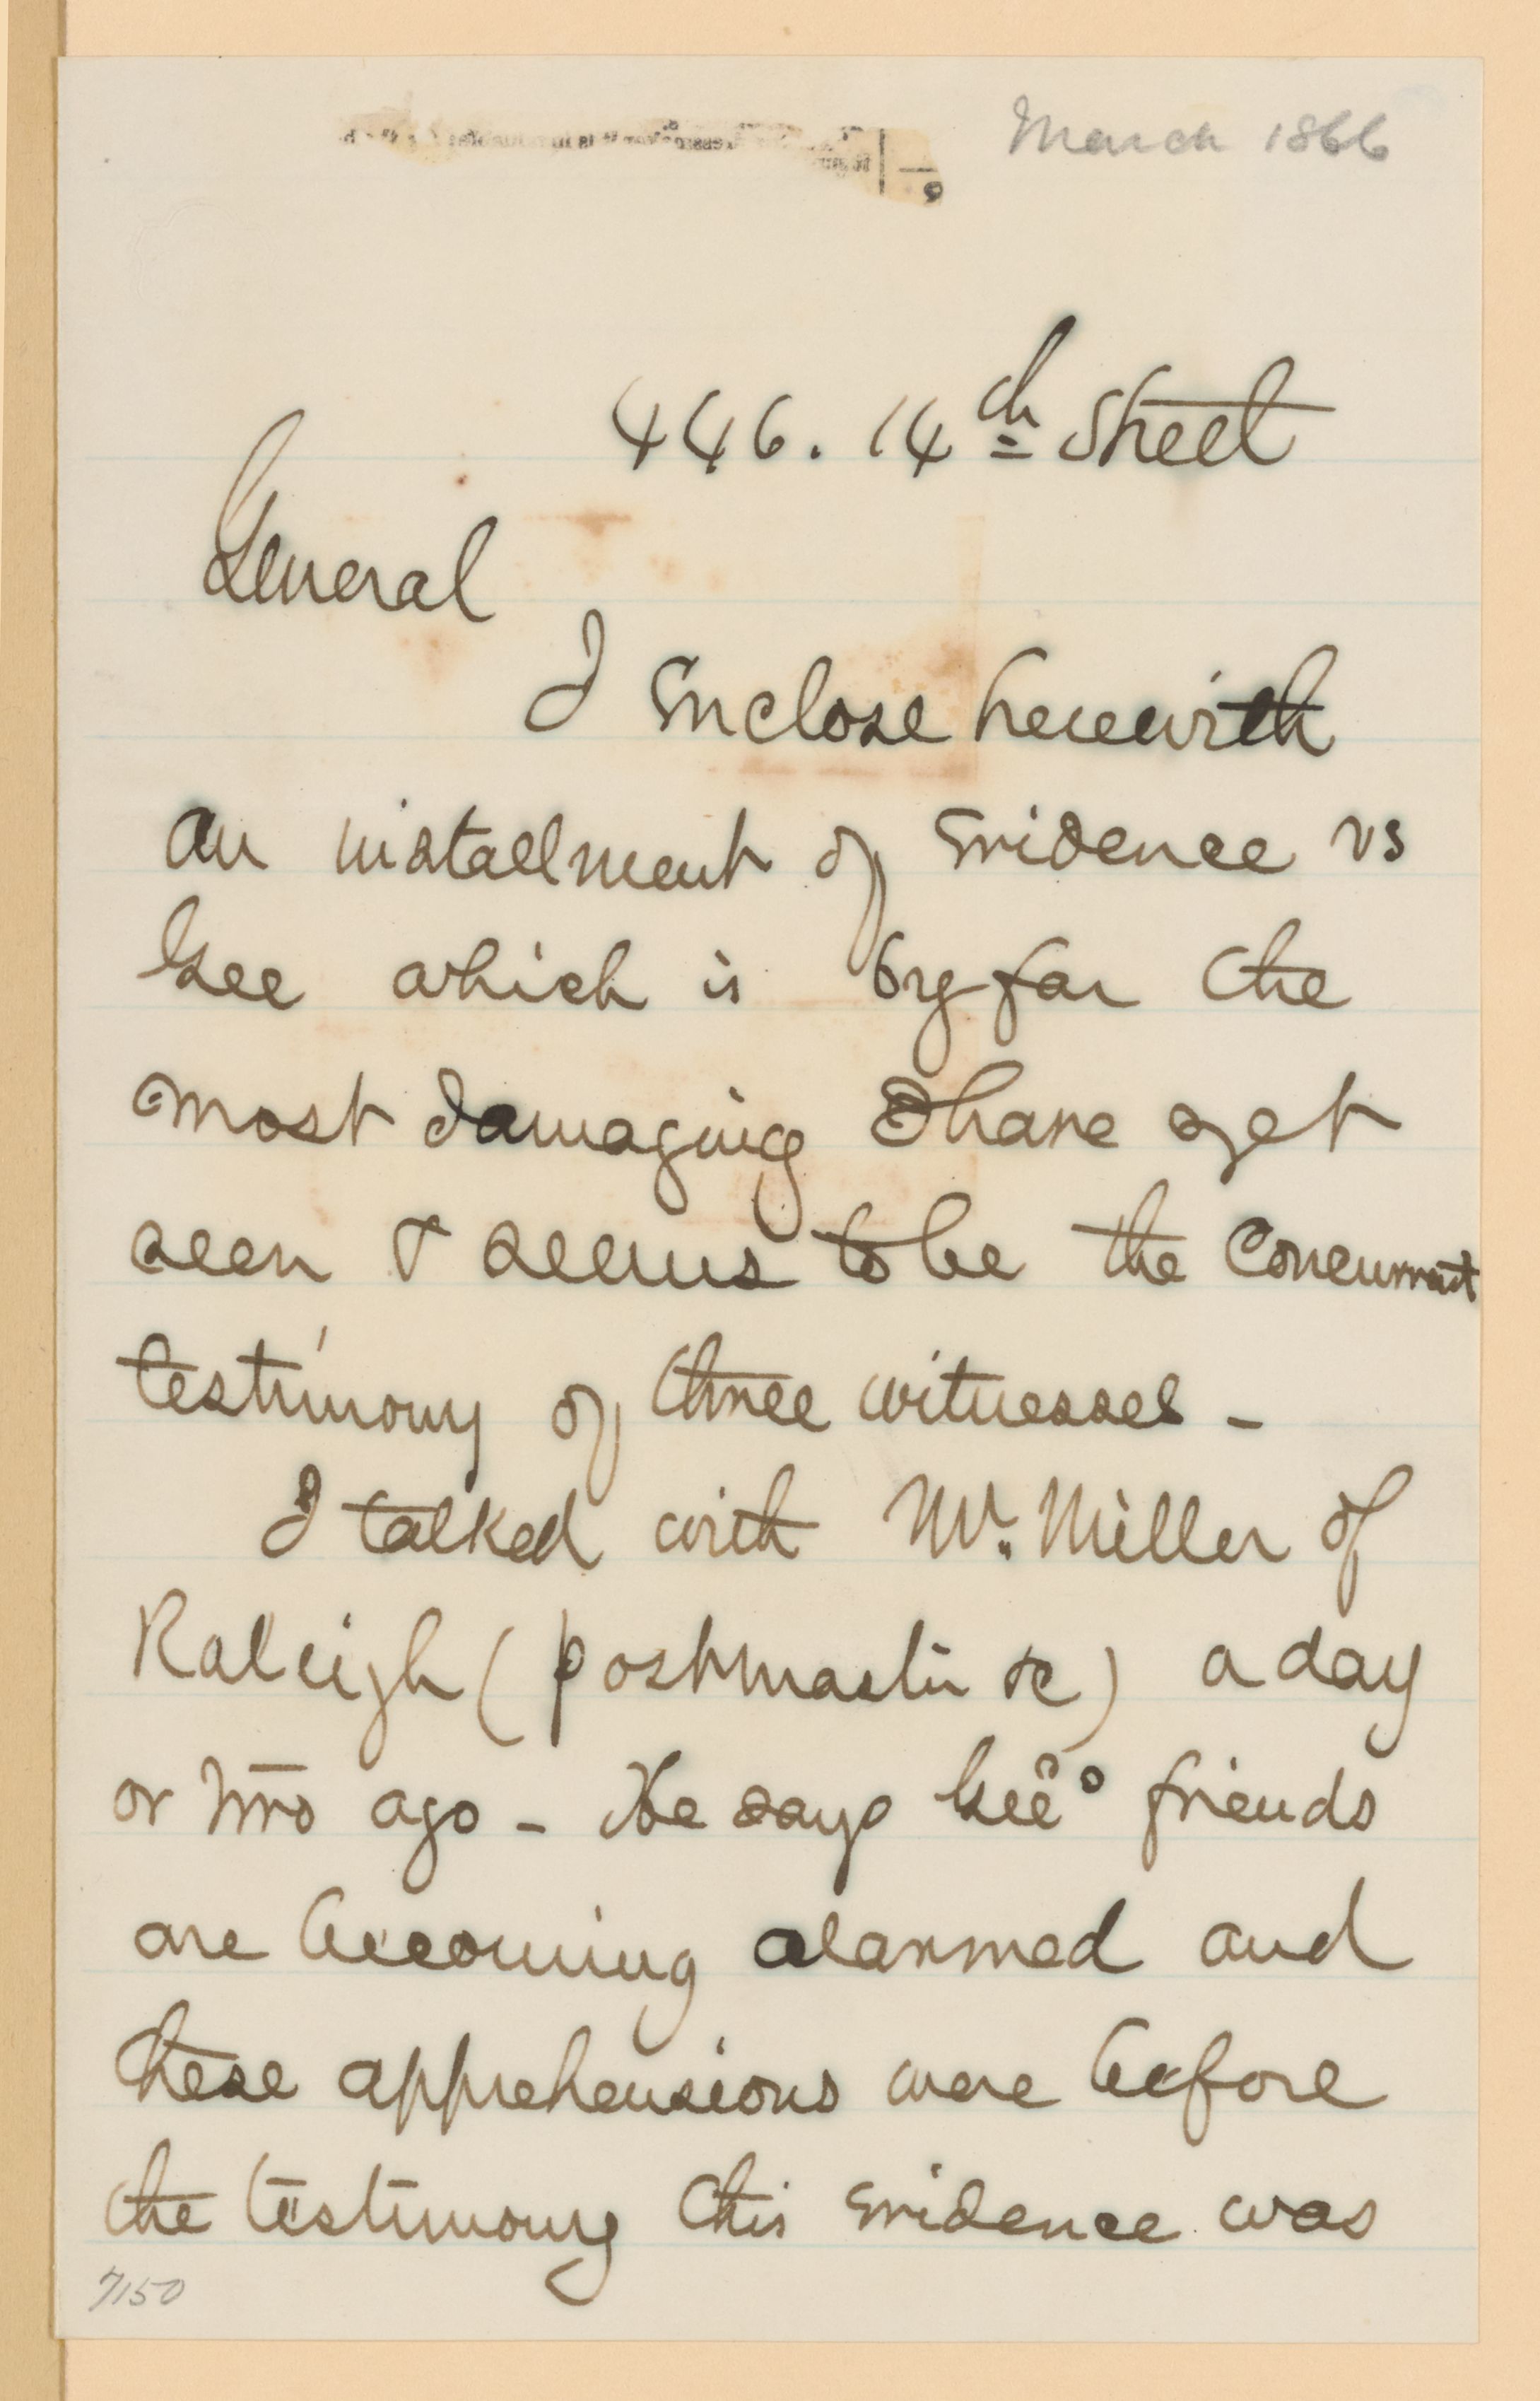 March 1866
446. 14th Street
General
I enclose herewith
an installment of evidence vs
Gee which is by far the
most damaging I have yet
seen & seems to be the concurrent
testimony of three witnesses -
I talked with Mr. Miller of
Raleigh (postmaster &c) a day
or two ago - He says Gee's friends
are becoming alarmed and
these apprehensions were before
the testimony this evidence was
7150